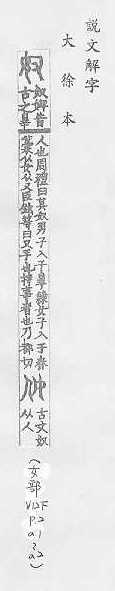 説文解字
大徐本
奴婢皆古之辠
人也周禮曰其奴男子入于辠隷女子入于舂
藁从女从又臣鉉等曰又手也持事者也乃都切
古文奴
从人
(女部
V12下
P.2
a1
a2)